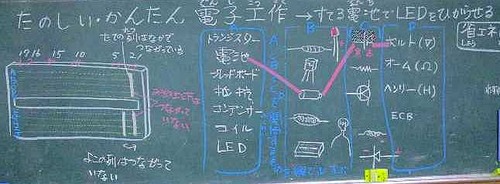 たのしい・かんたん 電子工作 → すてる電池でLEDをひからせる
でん し こうさく でんち
省エネ
たての列はなかで
つながっている
17 16 15 10 5 2 1
つながって
いない
よこの列はつながって
いない
A
トランジスター
電池
ブレッドボード
抵抗
コンデンサー
コイル
LED
B
ボルト(V)
オーム(Ω)
ヘンリー(H)
ECB